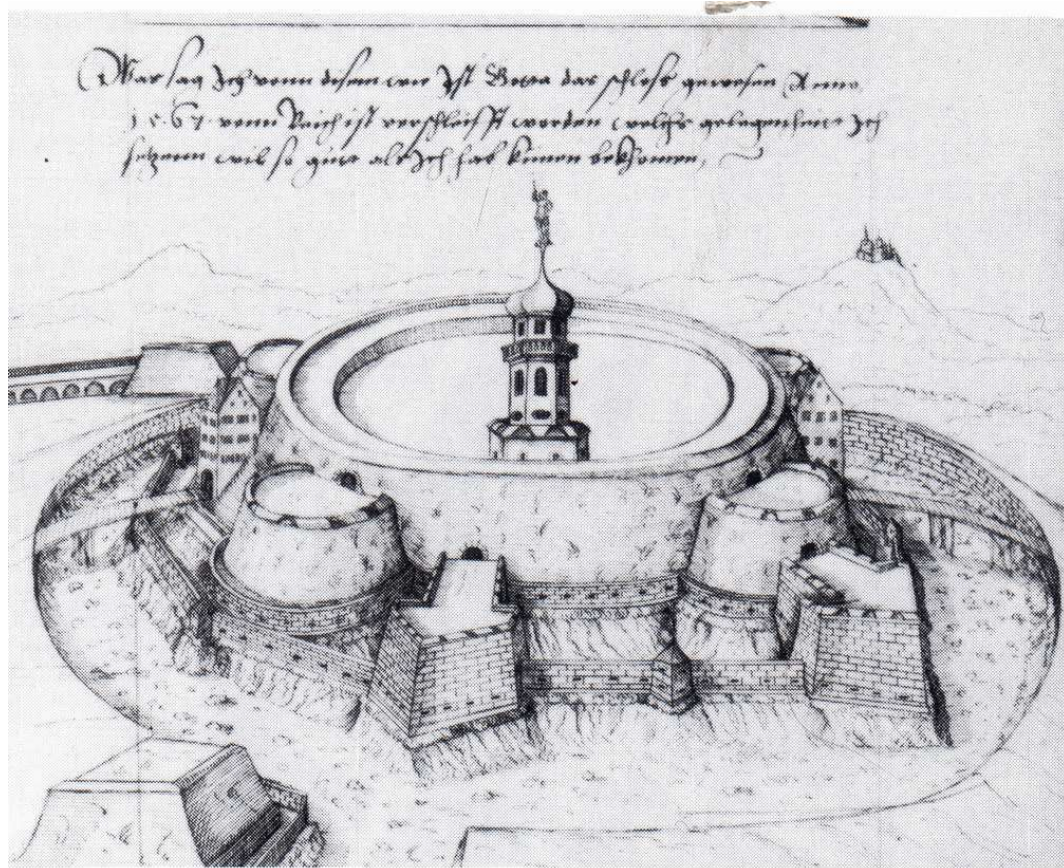 Was sag Ich vonn disem wie Ist Gotta das schloss gewesen Anno
1567 vonn Reich ist verschleifft worden welchs gelegenheit Ich
setzenn wil so gutt als Ich hab kinen bekhomen,